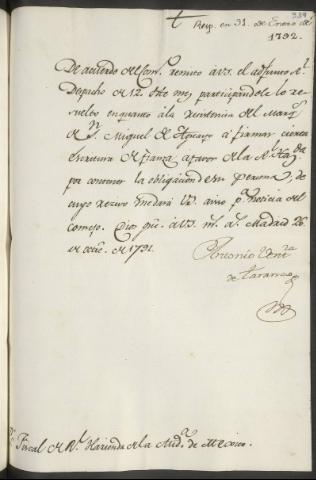 339
Resp. en 31. de Enero de
1792.
De acuerdo del Cons.º remito a VS. el adjunto R.l
Despacho de 12. de este mes participandole lo re-
suelto en quanto à la resistencia del Marq.s
de S.n Miguel de Aguayo à firmar cierta
escritura de fianza à favor de la R.l Haz.da
por contener la obligacion de su persona, de
cuyo recivo me dará VS. aviso p.a noticia del
consejo. Dios gūe. à VS. m.s a.s Madrid 26
de 1791.
Antonio Vent.a
de Taranco
S.or Fiscal de R.l Hacienda de la Aud.a de Mexico.